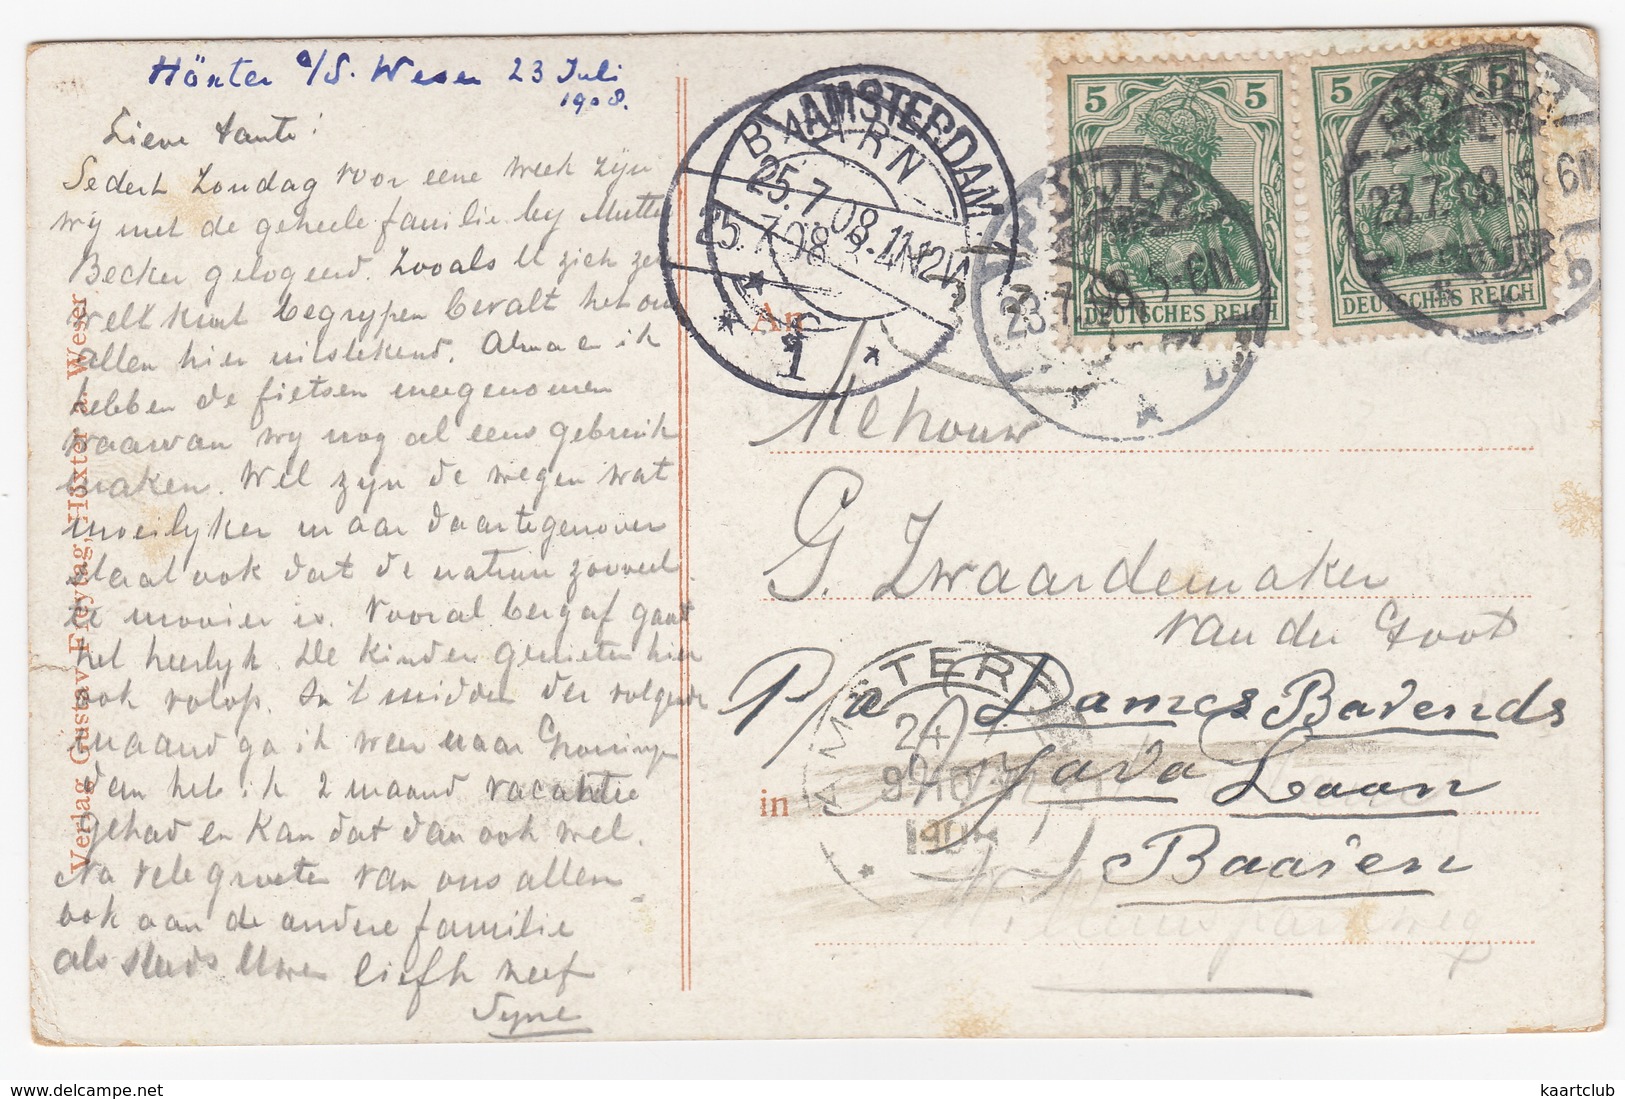 Höxter a/d. Weser 23 Juli
1908.
Lieve tante!
Sedert Zondag voor eene week zijn
wij met de geheele familie bij Mutter
Becker gelogeerd. Zooals U zich zeer
well kunt begrijpen bevalt het ons
allen hier uitstekend. Alma en ik
hebben de fietsen meegenomen
waarvan wij nog al eens gebruik
maken. Wel zijn de wegen wat
moeilijker maar daartegenover
staat ook dat de natuur zooveel
te mooier is. Vooral bergaf gaat
het heerlijk. De kinderen genieten hier
ook volop. In 't midden der volgende
maand ga ik weer naar Groningen
dan heb ik 2 maand vacantie
gehad en kan dat dan ook wel.
Na vele groeten van ons allen
ook aan de andere familie
als steeds Uwen liefh neef
Verlag Gustav Freytag, Höxter a. Weser
AMSTERDAM
BAARN
25.7.08
25.7.08
1
5 5
DEUTSCHES REICH
5 5
DEUTSCHES REICH
HÖXTER
23.7.08.5-6N
b
An
Mehouw
G. Zwaardemaker
van der Groot
P/a Dames Barends
Java Laan
in
Baaren
AMSTERD
24
kaartclub